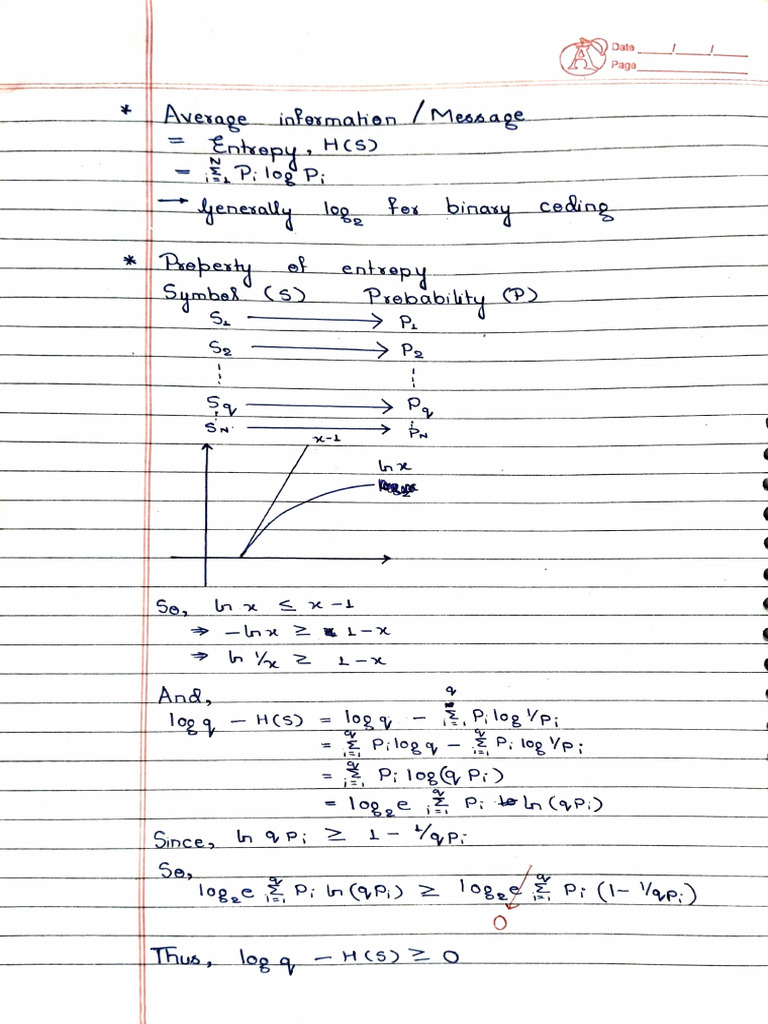 Date / /
Page
* Average information / Message
= Entropy, H(S)
= N Σ i=1 Pi log Pi
→ Generally log₂ for binary coding
* Property of entropy
Symbol (S) Probability (P)
S₁ → P₁
S₂ → P₂
Sq → Pq
SN → PN
x-1
ln x
So, ln x ≤ x-1
⇒ -ln x ≥ 1-x
⇒ ln 1/x ≥ 1-x
And,
log q - H(S) = log q - q Σ i=1 Pi log 1/Pi
= q Σ i=1 Pi log q - q Σ i=1 Pi log 1/Pi
= q Σ i=1 Pi log (q Pi)
= log₂ e q Σ i=1 Pi ln (q Pi)
Since, ln q Pi ≥ 1 - 1/q Pi
So,
log₂ e q Σ i=1 Pi ln (q Pi) ≥ log₂ e q Σ i=1 Pi (1 - 1/q Pi)
0
Thus, log q - H(S) ≥ 0